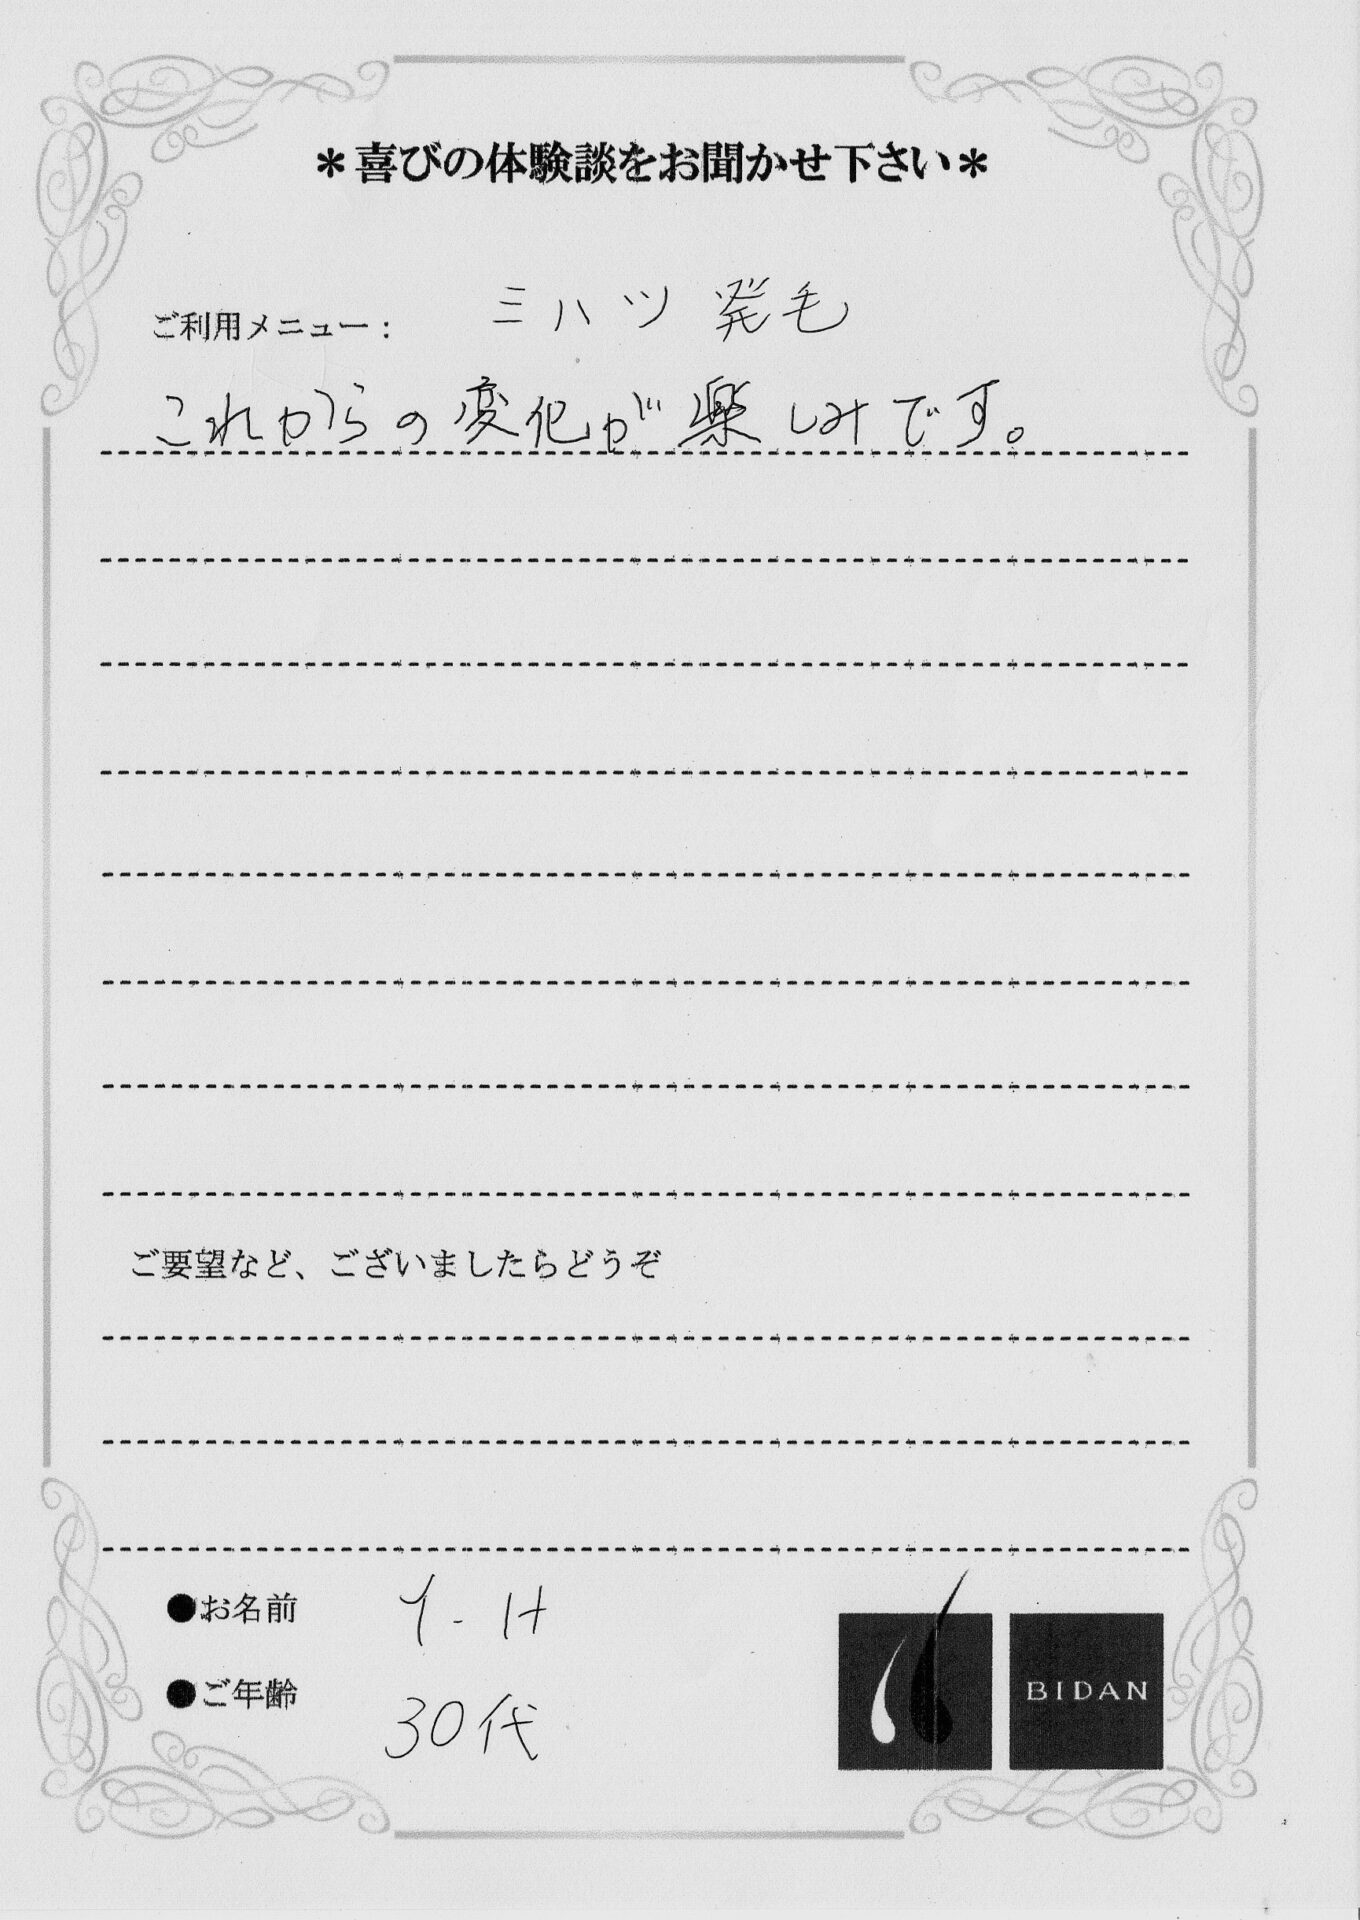 ＊喜びの体験談をお聞かせ下さい＊
ご利用メニュー： ミハツ 発毛
これからの変化が楽しみです。
ご要望など、ございましたらどうぞ
●お名前 Y-H
●ご年齢 30代
BIDAN